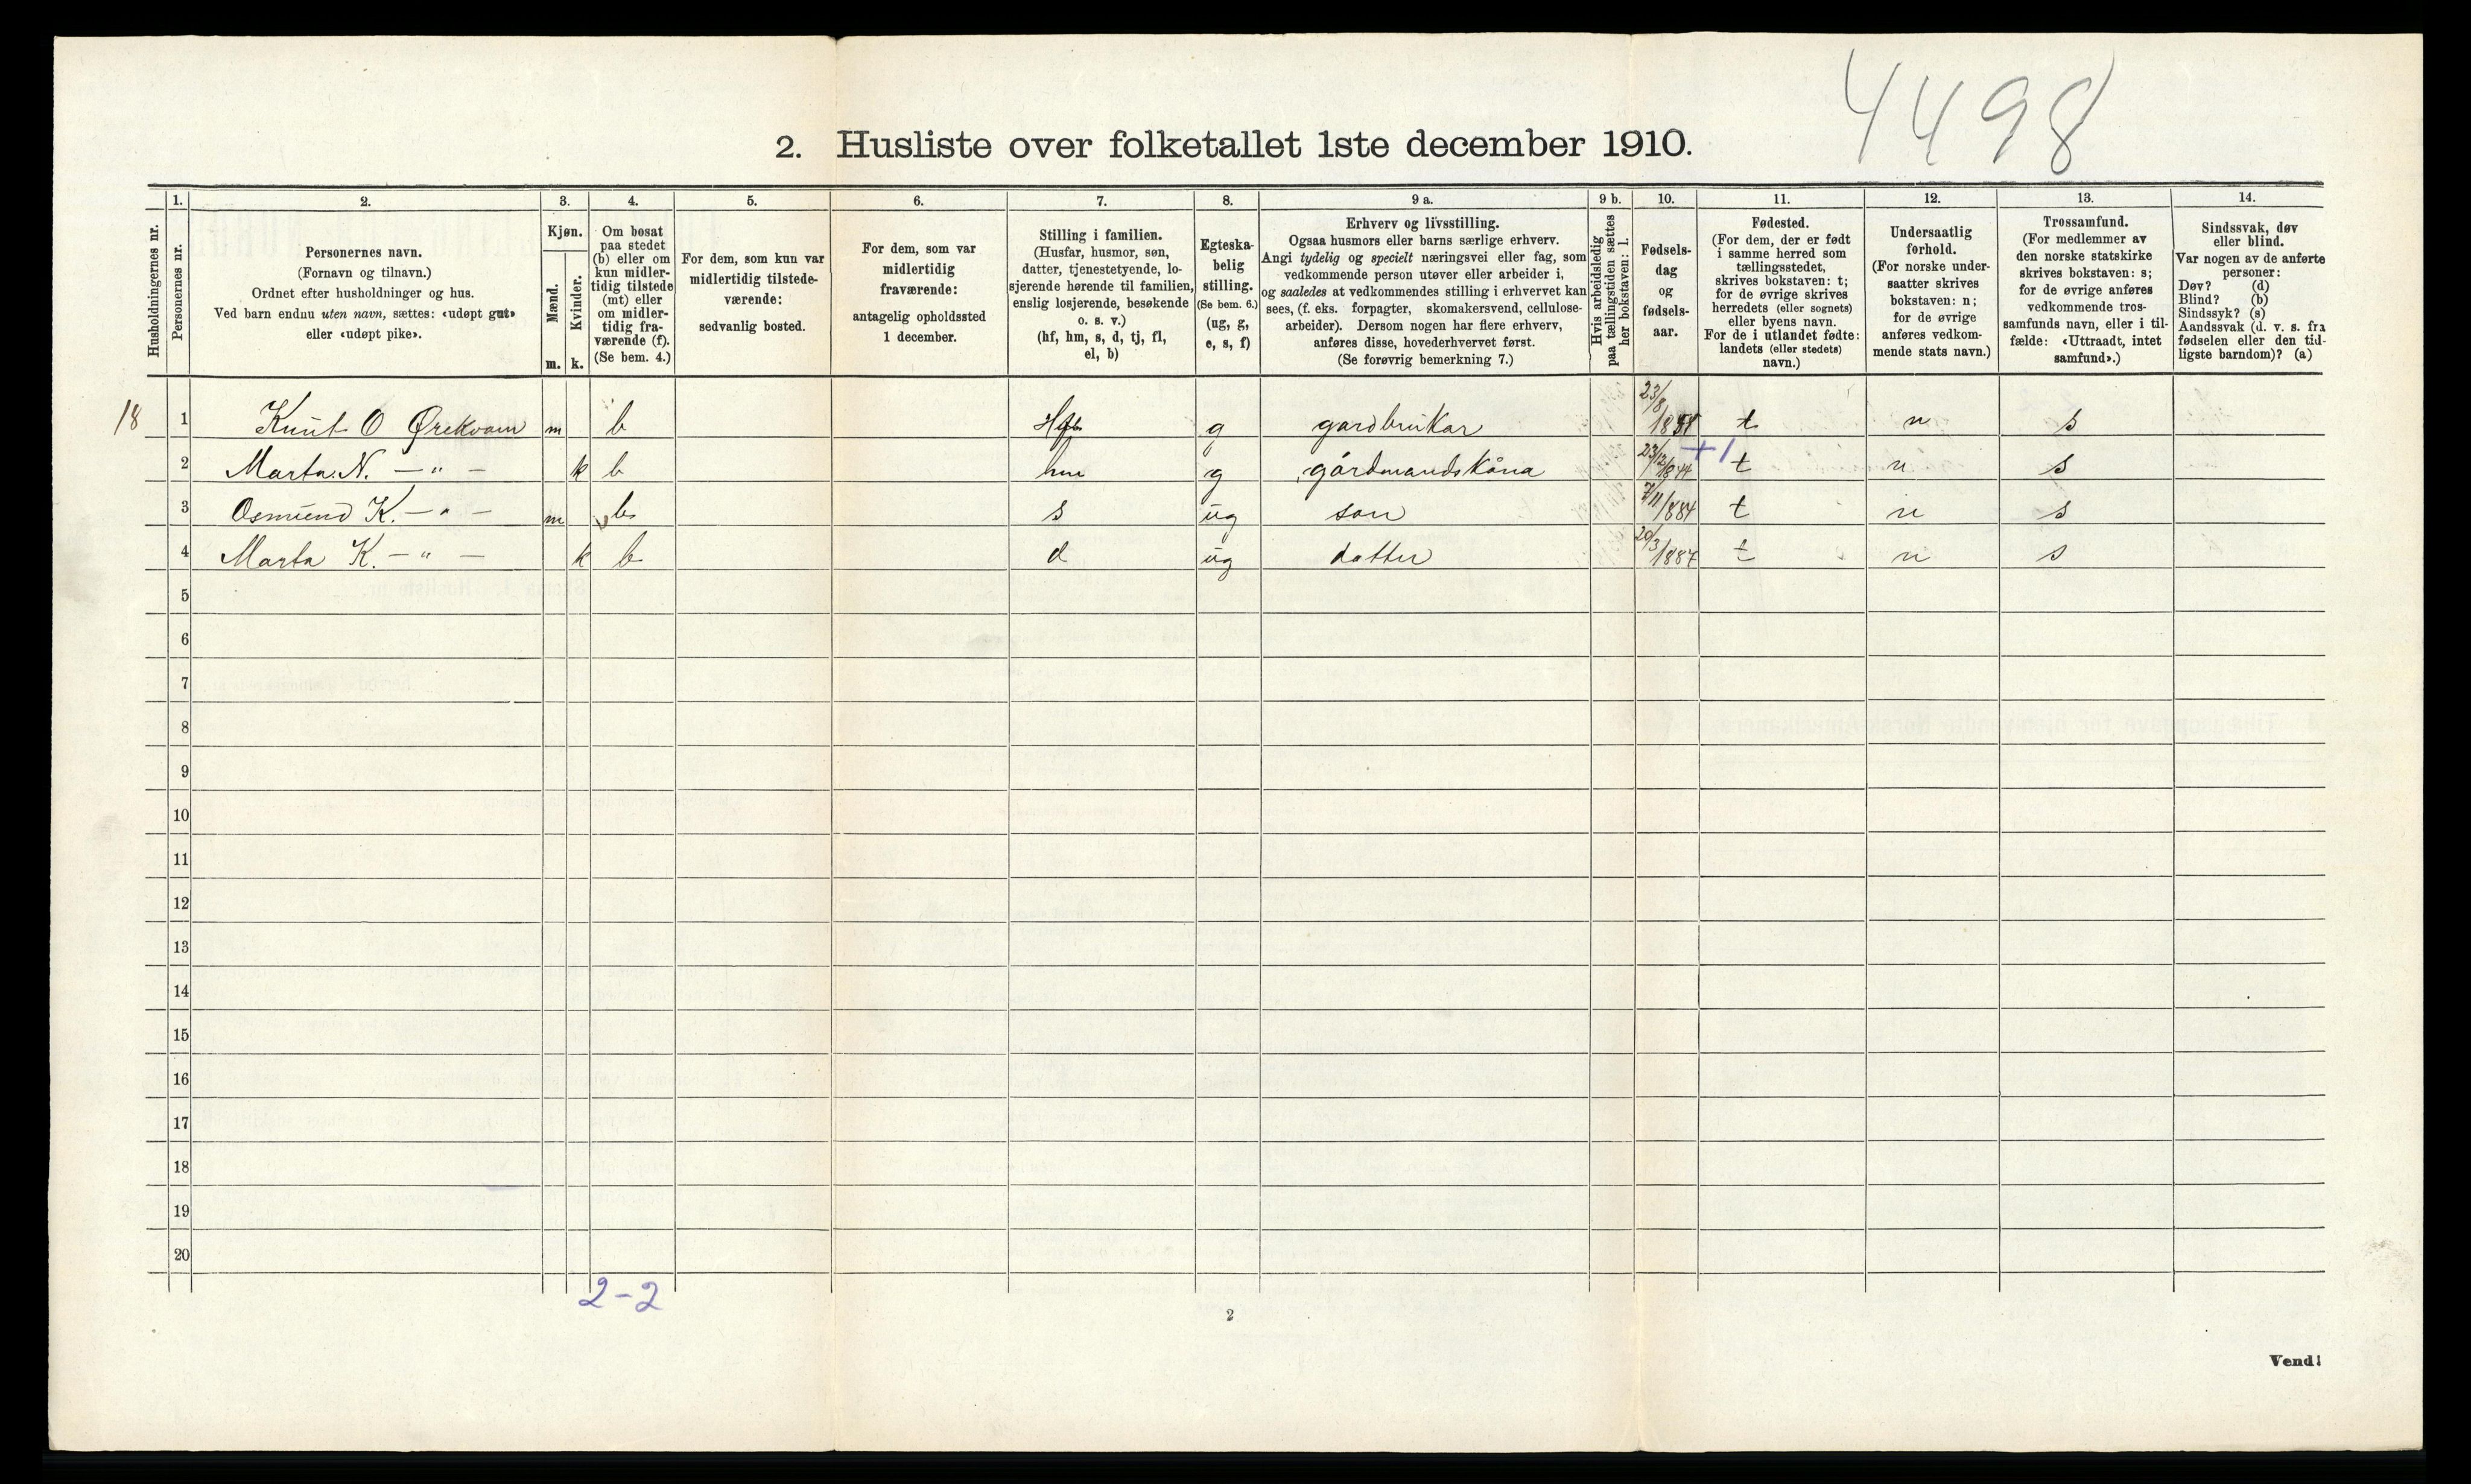 4498
2. Husliste over folketallet 1ste december 1910.
Husholdningernes nr.
1.
Personernes nr.
2.
Personernes navn.
(Fornavn og tilnavn.)
Ordnet efter husholdninger og hus.
Ved barn endnu uten navn, sættes: «udøpt gut»
eller «udøpt pike».
3.
Kjøn.
Mænd.
Kvinder.
m. k.
4.
Om bosat
paa stedet
(b) eller om
kun midler-
tidig tilstede
(mt) eller
om midler-
tidig fra-
værende (f).
(Se bem. 4.)
5.
For dem, som kun var
midlertidig tilstede-
værende:
sedvanlig bosted.
6.
For dem, som var
midlertidig
fraværende:
antagelig opholdssted
1 december.
7.
Stilling i familien.
(Husfar, husmor, søn,
datter, tjenestetyende, lo-
sjerende hørende til familien,
enslig losjerende, besøkende
o. s. v.)
(hf, hm, s, d, tj, fl,
el, b)
8.
Egteska-
belig
stilling.
(Se bem. 6.)
(ug, g,
e, s, f)
9 a.
Erhverv og livsstilling.
Ogsaa husmors eller barns særlige erhverv.
Angi tydelig og specielt næringsvei eller fag, som
vedkommende person utøver eller arbeider i,
og saaledes at vedkommendes stilling i erhvervet kan
sees, (f. eks. forpagter, skomakersvend, cellulose-
arbeider). Dersom nogen har flere erhverv,
anføres disse, hovederhvervet først.
(Se forøvrig bemerkning 7.)
9 b.
Hvis arbeidsledig
paa tællingstiden sættes
her bokstaven: l.
10.
Fødsels-
dag
og
fødsels-
aar.
11.
Fødested.
(For dem, der er født
i samme herred som
tællingsstedet,
skrives bokstaven: t;
for de øvrige skrives
herredets (eller sognets)
eller byens navn.
For de i utlandet fødte:
landets (eller stedets)
navn.)
12.
Undersaatlig
forhold.
(For norske under-
saatter skrives
bokstaven: n;
for de øvrige
anføres vedkom-
mende stats navn.)
13.
Trossamfund.
(For medlemmer av
den norske statskirke
skrives bokstaven: s;
for de øvrige anføres
vedkommende tros-
samfunds navn, eller i til-
fælde: «Uttraadt, intet
samfund».)
14.
Sindssvak, døv
eller blind.
Var nogen av de anførte
personer:
Døv? (d)
Blind? (b)
Sindssyk? (s)
Aandssvak (d. v. s. fra
fødselen eller den tid-
ligste barndom)? (a)
18 1 Knut O Ørekvam m b g gardbrukar 23/8 t n s
2 Marta N. — " — k b hm g gårdmandskåna 23/12 1844 +1 t n s
3 Osmund K. — " — m b s ug son 7/11 1884 t n s
4 Marta K. — " — k b d ug datter 20/3 1887 t n s
5
6
7
8
9
10
11
12
13
14
15
16
17
18
19
20
2-2
2
Vend!